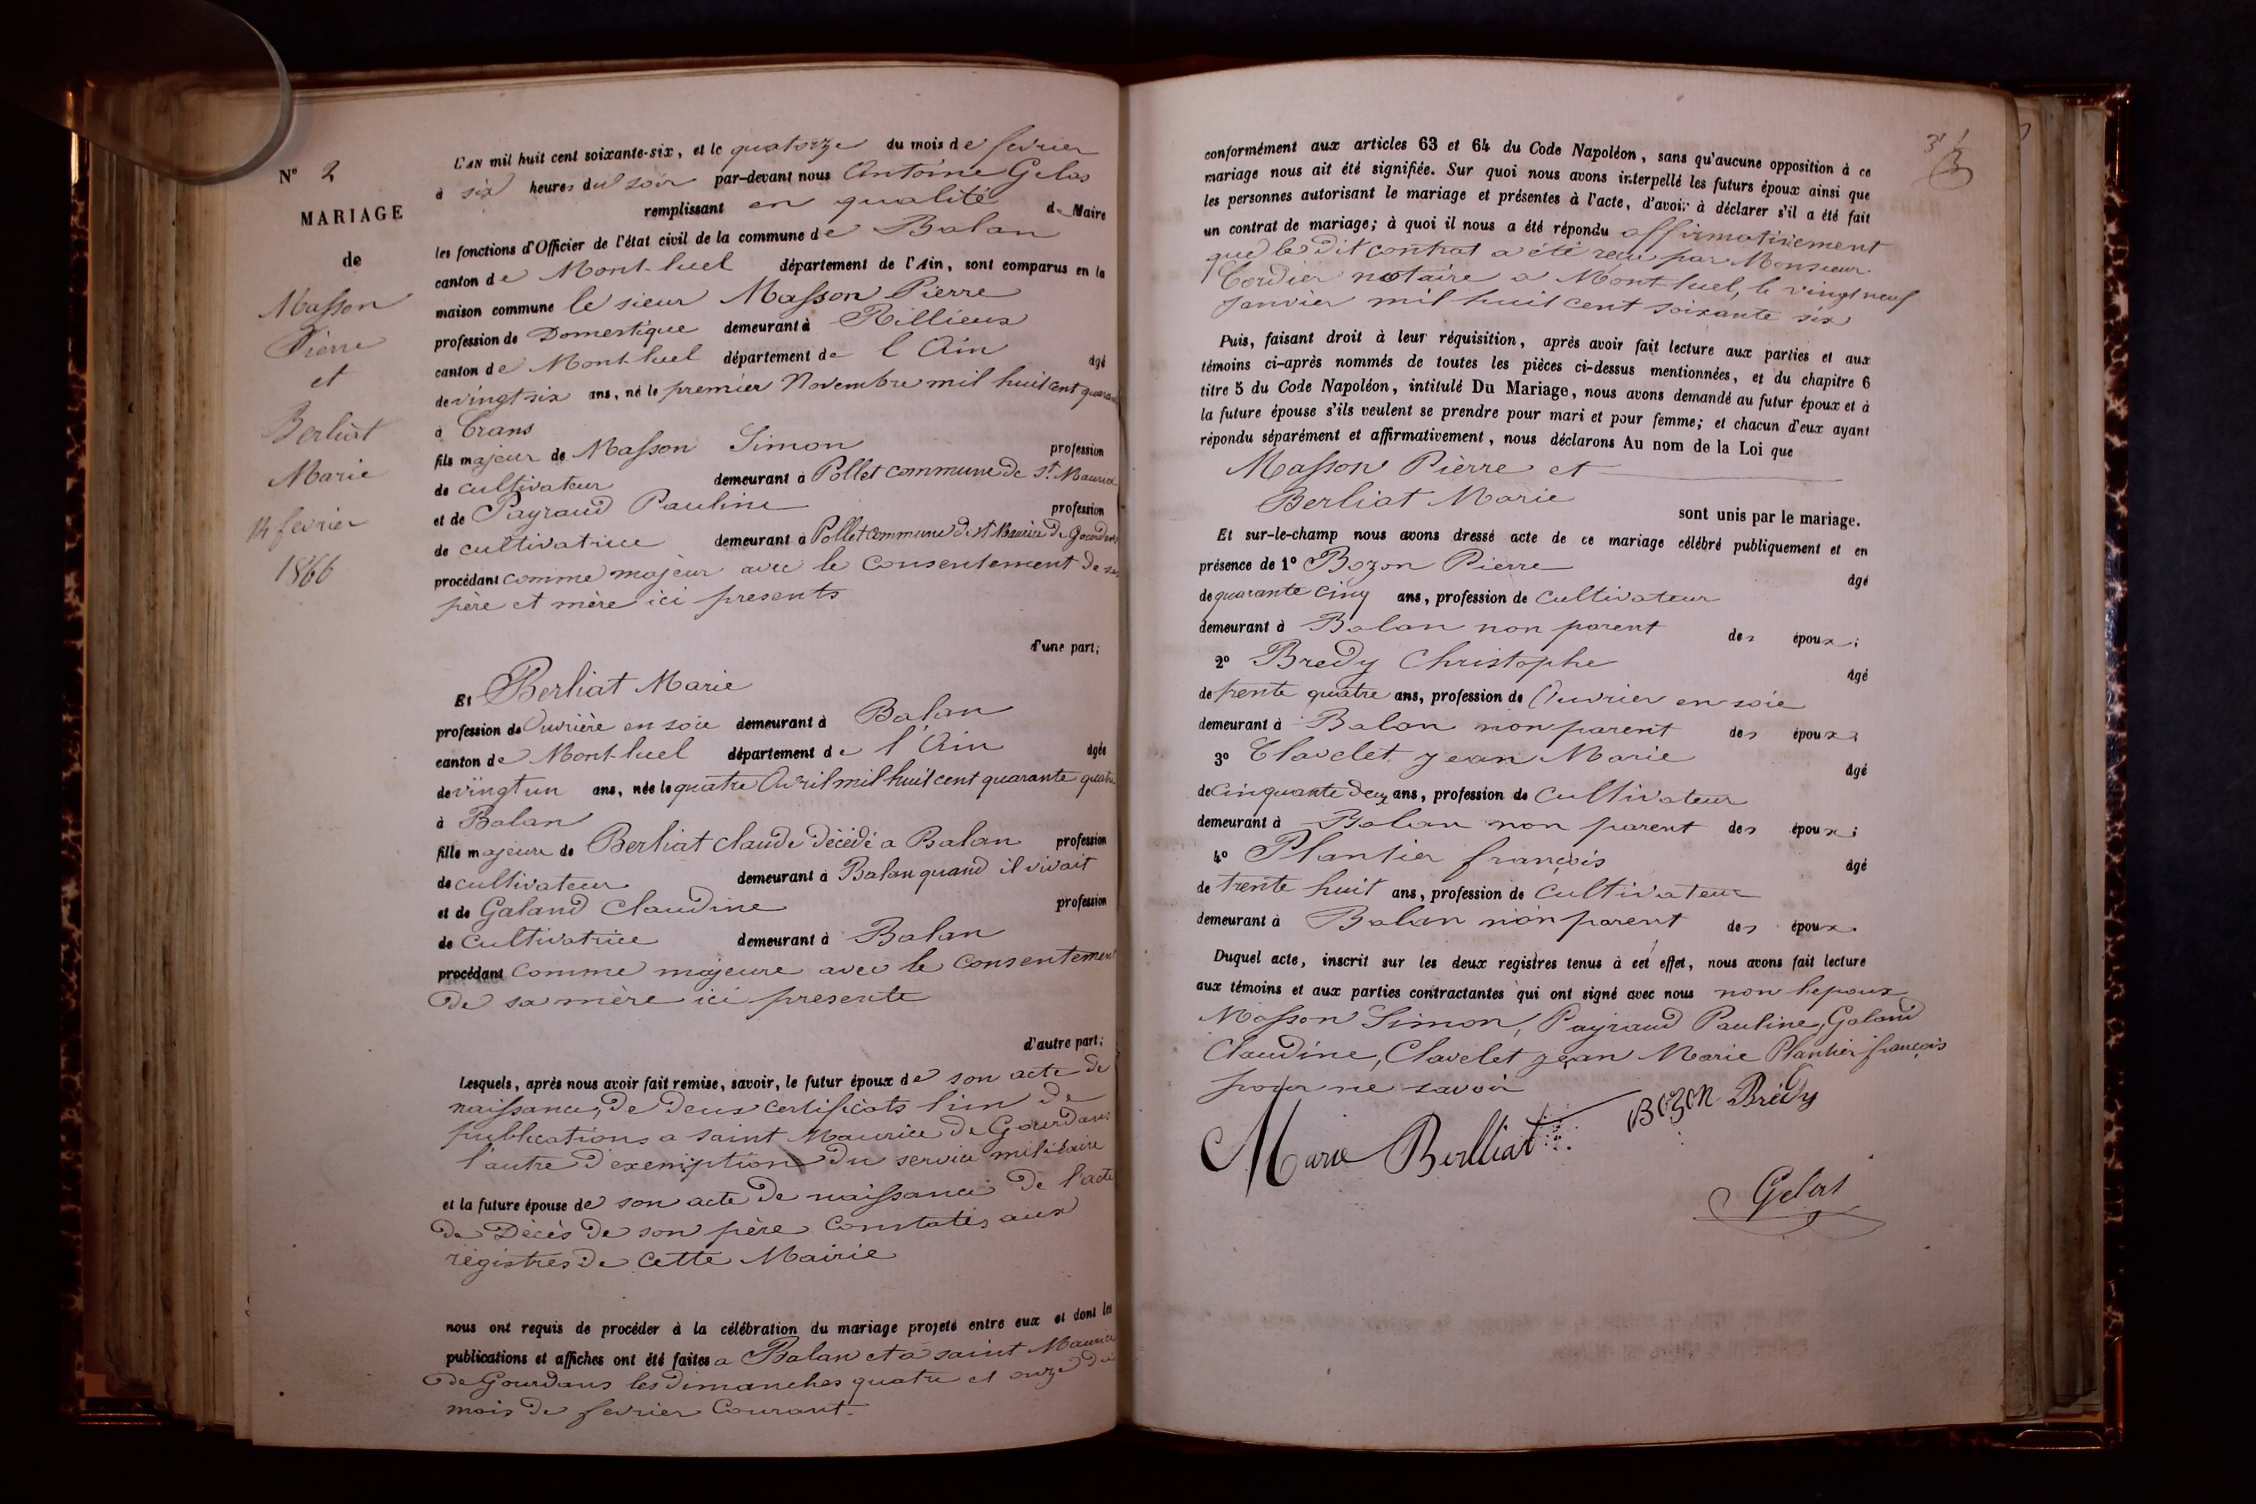 N° 2
MARIAGE
de
Masson
Pierre
et
Berliat
Marie
14 fevrier
1866
L'AN mil huit cent soixante-six, et le quatorze du mois de fevrier
à six heures du soir par-devant nous Antoine Gelas
remplissant en qualité de Maire
les fonctions d'Officier de l'état civil de la commune de Balan
canton de Mont-luel département de l'Ain, sont comparus en la
maison commune le sieur Masson Pierre
profession de Domestique demeurant à Rillieux
canton de Mont-luel département de l'Ain âgé
de vingt six ans, né le premier Novembre mil huit cent
à Crans
fils majeur de Masson Simon profession
de cultivateur demeurant à Pollet commune de St Maurice
et de Payraud Pauline profession
de cultivatrice demeurant à Pollet commune de St Maurice de Gourdans
procédant comme majeur avec le consentement de ses
père et mère ici presents
d'une part;
Et Berliat Marie
profession de Ouvrière en soie demeurant à Balan
canton de Mont-luel département de l'Ain âgée
de vingt un ans, née le quatre Avril mil huit cent quarante quatre
à Balan
fille majeure de Berliat claude décédé a Balan profession
de cultivateur demeurant à Balan quand il vivait
et de Galand Claudine profession
de cultivatrice demeurant à Balan
procédant comme majeure avec le consentement
de sa mère ici presente
d'autre part;
Lesquels, après nous avoir fait remise, savoir, le futur époux de son acte de
naissance, de deux certificats l'un de
publications a saint Maurice de Gourdans
l'autre d'exemption du service militaire
et la future épouse de son acte de naissance de l'acte
de Décès de son père constatés aux
régistres de cette Mairie
nous ont requis de procéder à la célébration du mariage projeté entre eux et dont les
publications et affiches ont été faites a Balan et à saint Maurice
de Gourdans les dimanches quatre et onze du
mois de fevrier Courant.
conformément aux articles 63 et 64 du Code Napoléon, sans qu'aucune opposition à ce
mariage nous ait été signifiée. Sur quoi nous avons interpellé les futurs époux ainsi que
les personnes autorisant le mariage et présentes à l'acte, d'avoir à déclarer s'il a été fait
un contrat de mariage; à quoi il nous a été répondu affirmativement
que le dit contrat a été reçu par Monsieur
Cordier notaire a Mont-luel, le vingt neuf
Janvier mil huit cent soixante six
Puis, faisant droit à leur réquisition, après avoir fait lecture aux parties et aux
témoins ci-après nommés de toutes les pièces ci-dessus mentionnées, et du chapitre 6
titre 5 du Code Napoléon, intitulé Du Mariage, nous avons demandé au futur époux et à
la future épouse s'ils veulent se prendre pour mari et pour femme; et chacun d'eux ayant
répondu séparément et affirmativement, nous déclarons Au nom de la Loi que
Masson Pierre et
Berliat Marie
sont unis par le mariage.
Et sur-le-champ nous avons dressé acte de ce mariage célébré publiquement et en
présence de 1° Bozon Pierre âgé
de quarante cinq ans, profession de Cultivateur
demeurant à Balan non parent des époux;
2° Bredy Christophe âgé
de trente quatre ans, profession de Ouvrier en soie
demeurant à Balan non parent des époux;
3° Clavelet Jean Marie âgé
de Cinquante deux ans, profession de Cultivateur
demeurant à Balan non parent des époux;
4° Plantier françois âgé
de trente huit ans, profession de Cultivateur
demeurant à Balan non parent des époux.
Duquel acte, inscrit sur les deux registres tenus à cet effet, nous avons fait lecture
aux témoins et aux parties contractantes qui ont signé avec nous non lepoux
Masson Simon, Payraud Pauline, Galand
Claudine, Clavelet Jean Marie Plantier françois
pour ne savoir
Marie Berlliat Bozon Brédy
Gelas